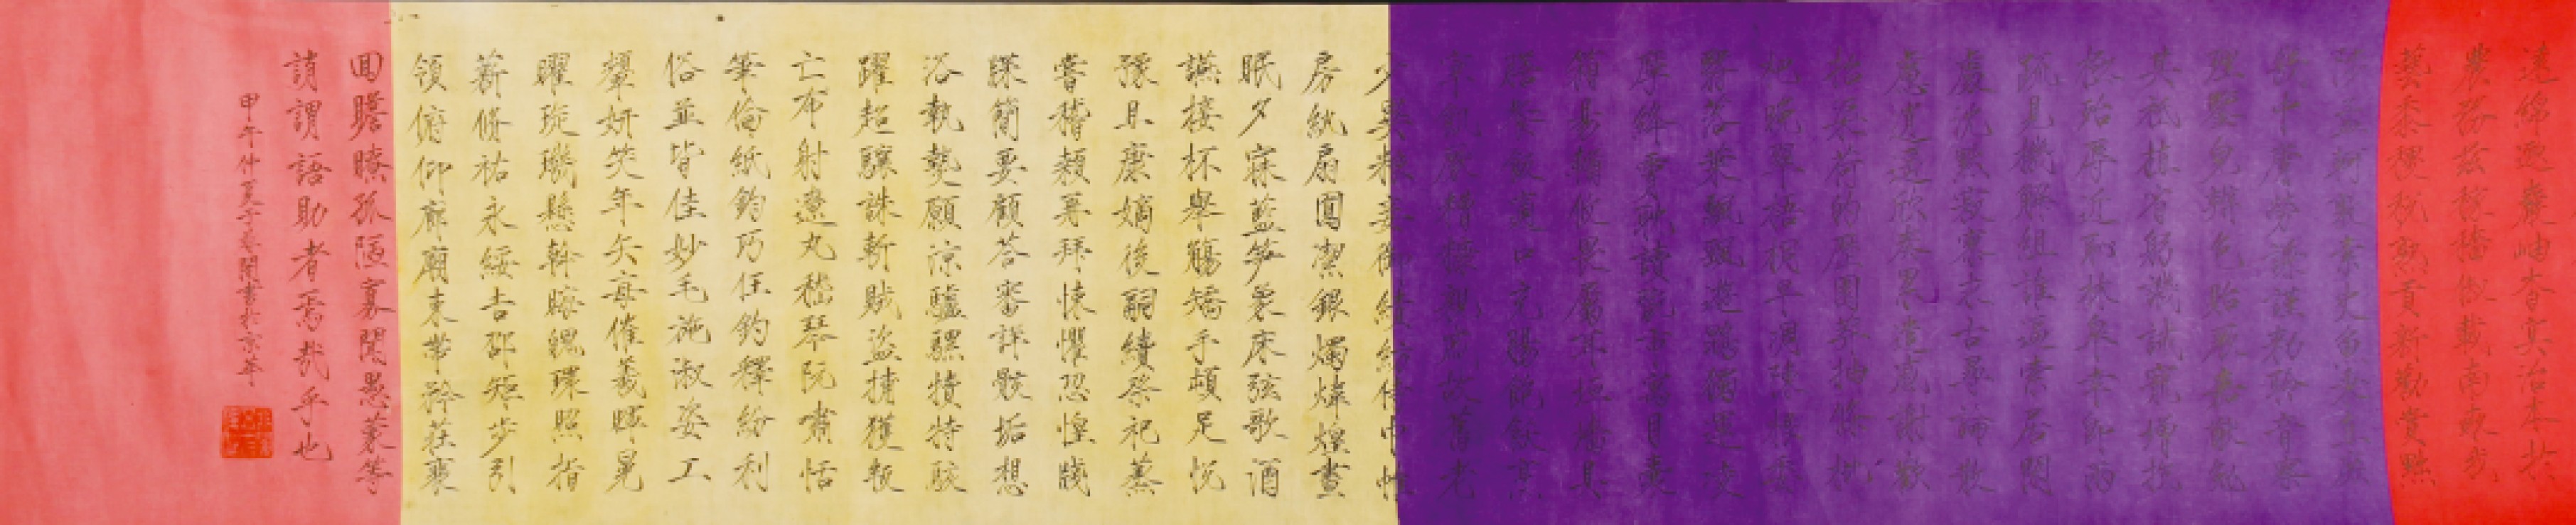 遠綿邈巖岫杳冥治本於
農務茲稼穡俶載南畝我
藝黍稷稅熟貢新勸賞黜
陟孟軻敦素史魚秉直庶
幾中庸勞謙謹勑聆音察
理鑒皃辨色貽厥嘉猷勉
其祗植省躬譏誡寵增抗
極殆辱近恥林皋幸即兩
疏見機解組誰逼索居閒
處沉默寂寥求古尋論散
慮逍遙欣奏累遣慼謝歡
招渠荷的歷園莽抽條枇
杷晚翠梧桐早凋陳根委
翳落葉飄颻遊鵾獨運凌
摩絳霄耽讀翫市寓目囊
箱易輶攸畏屬耳垣牆具
膳飡飯適口充腸飽飫烹
宰飢厭糟糠親戚故舊老
少異糧妾御績紡侍巾帷
房紈扇圓潔銀燭煒煌晝
眠夕寐藍筍象床弦歌酒
讌接杯舉觴矯手頓足悅
豫且康嫡後嗣續祭祀蒸
嘗稽顙再拜悚懼恐惶牋
牒簡要顧答審詳骸垢想
浴執熱願涼驢騾犢特駭
躍超驤誅斬賊盜捕獲叛
亡布射遼丸嵇琴阮嘯恬
筆倫紙鈞巧任釣釋紛利
俗並皆佳妙毛施淑姿工
顰妍笑年矢每催羲暉晃
曜琁璣懸斡晦魄環照指
薪脩祜永綏吉邵矩步引
領俯仰廊廟束帶矜莊裴
回瞻眺孤陋寡聞愚蒙等
誚謂語助者焉哉乎也
甲午仲夏書於京華